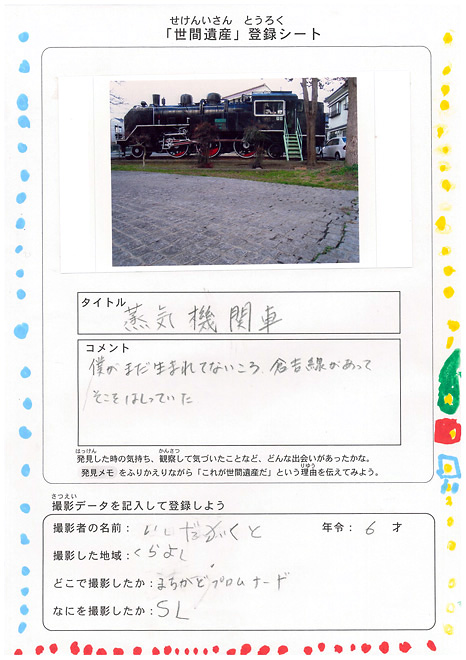 せけんいさん とうろく
「世間遺産」登録シート
タイトル
蒸気機関車
コメント
僕がまだ生まれてないころ、倉吉線があって
そこをはしっていた
はっけん かんさつ
発見した時の気持ち、観察して気づいたことなど、どんな出会いがあったかな。
りゆう
発見メモをふりかえりながら「これが世間遺産だ」という理由を伝えてみよう。
さつえい
撮影データを記入して登録しよう
撮影者の名前:いしだがくと 年令:6 才
撮影した地域:くらよし
どこで撮影したか:まちかどプロムナード
なにを撮影したか:SL